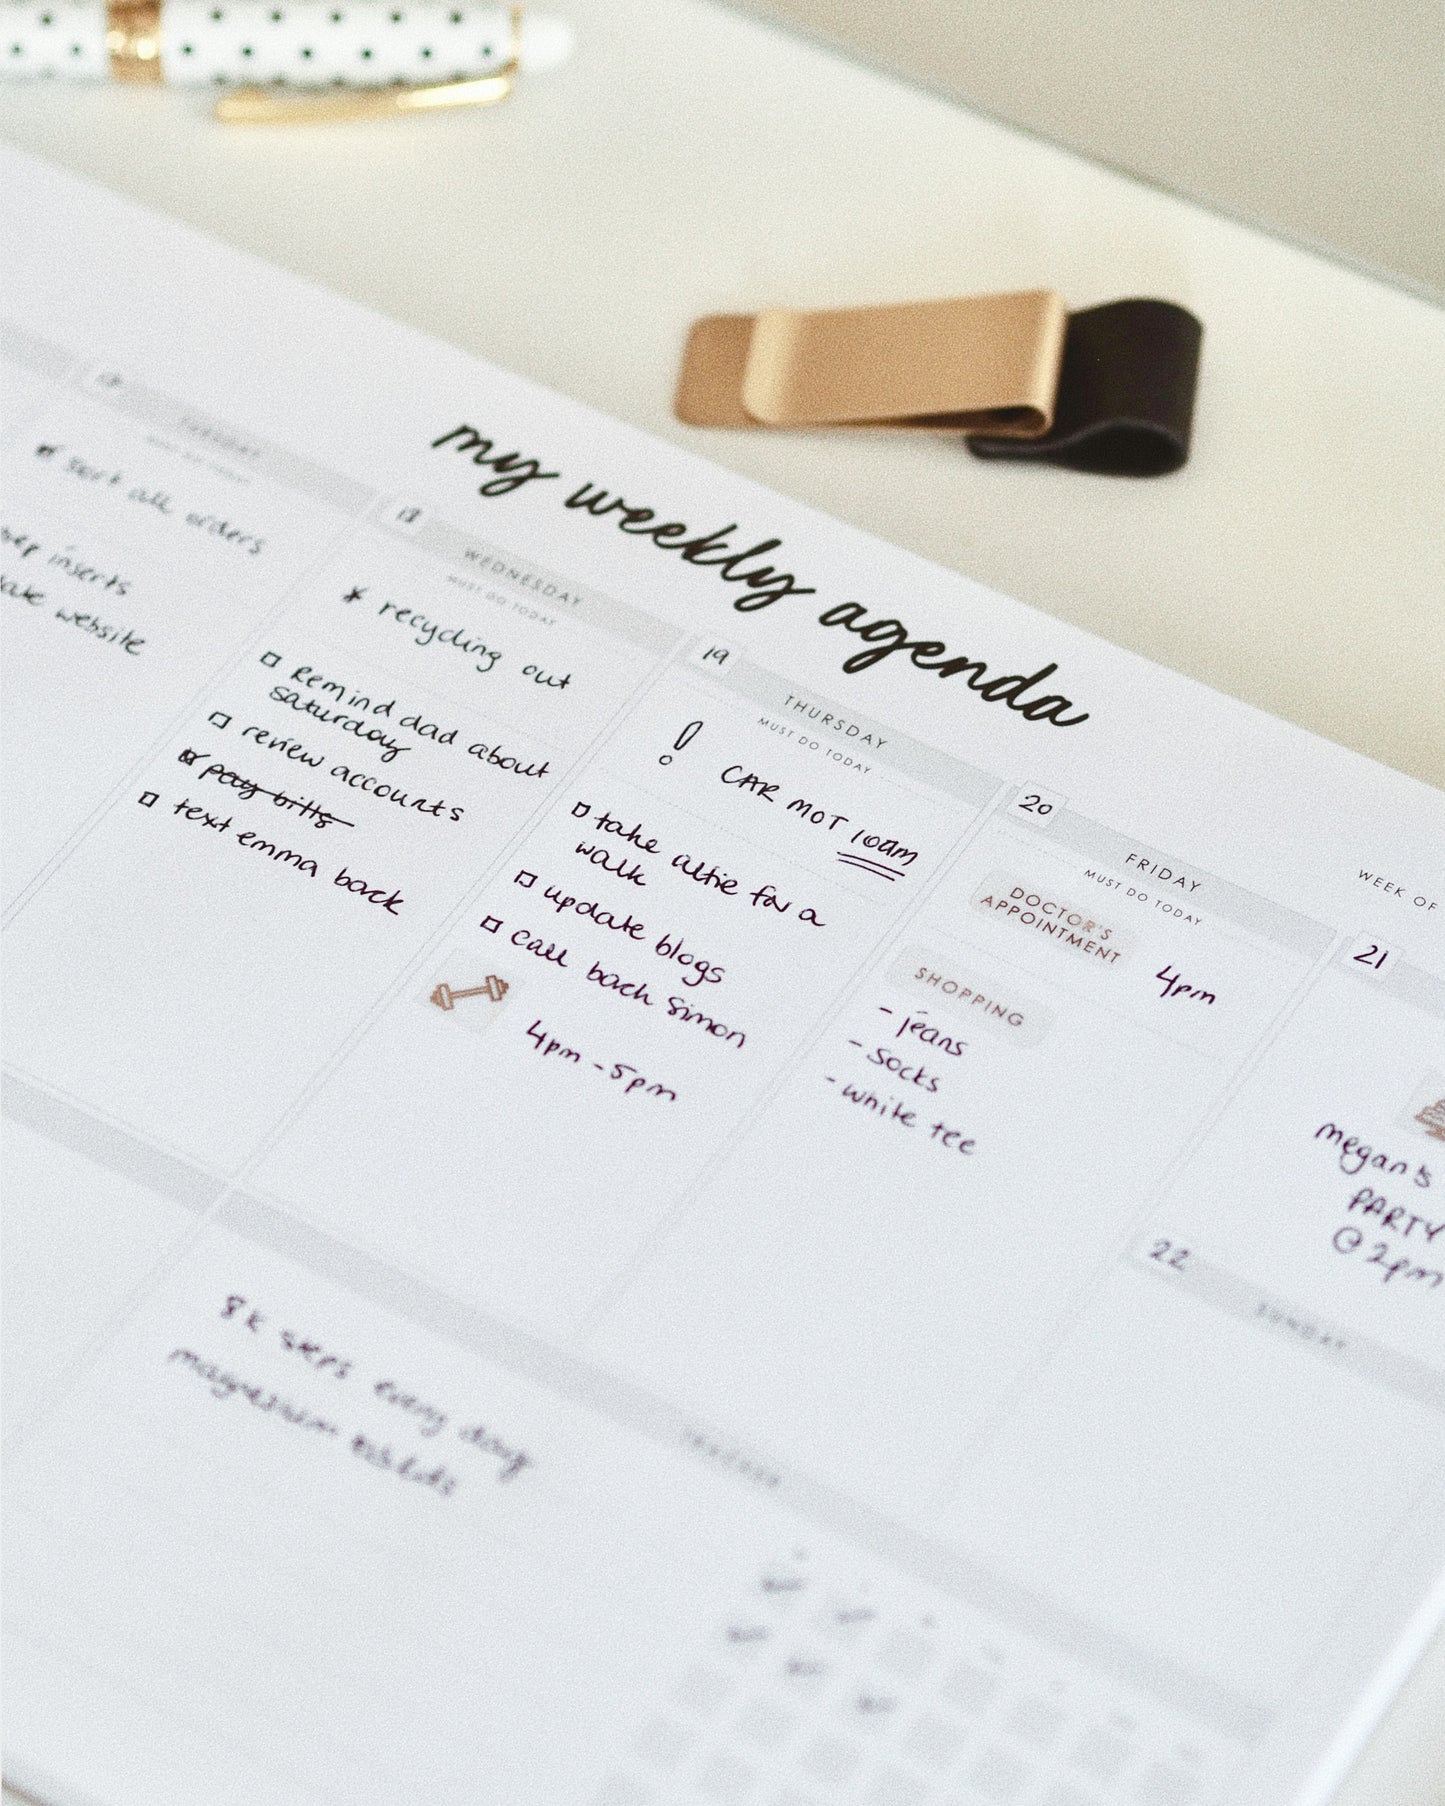 my weekly agenda
WEEK OF
TUESDAY
sort all orders
inserts
website
18
WEDNESDAY
MUST DO TODAY
* recycling out
remind dad about
saturday
review accounts
pay bills
text emma back
19
THURSDAY
MUST DO TODAY
! CAR MOT 10am
take alfie for a
walk
update blogs
call back simon
4pm - 5pm
20
FRIDAY
MUST DO TODAY
DOCTOR'S
APPOINTMENT
4pm
SHOPPING
- jeans
- socks
- white tee
21
megan's
PARTY
@ 2pm
22
SUNDAY
8k steps every day
magnesium tablets
TRACKER